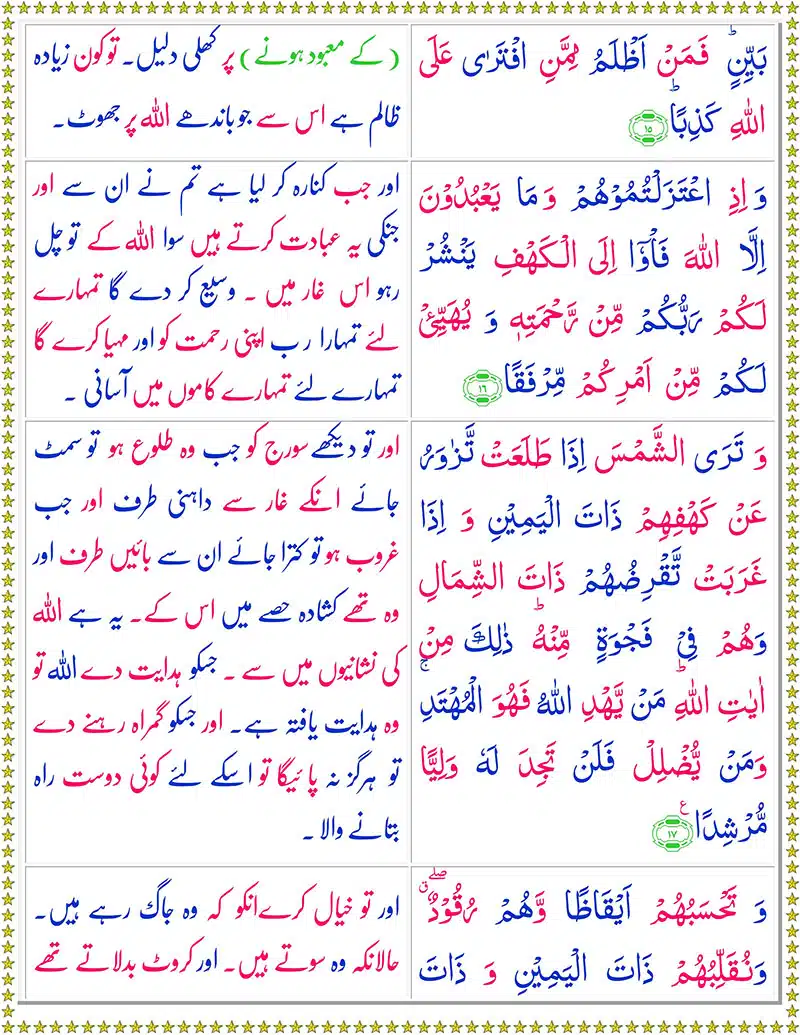 بَيِّنٍ ؕ فَمَنۡ اَظۡلَمُ مِمَّنِ افۡتَرٰى عَلَى
اللّٰهِ كَذِبًا ؕ ۱۵
(کے معبود ہونے) پر کھلی دلیل۔ تو کون زیادہ
ظالم ہے اس سے جو باندھے اللہ پر جھوٹ۔
وَاِذِ اعۡتَزَلۡتُمُوۡهُمۡ وَمَا يَعۡبُدُوۡنَ
اِلَّا اللّٰهَ فَاۡوٗۤا اِلَى الۡـكَهۡفِ يَنۡشُرۡ
لَـكُمۡ رَبُّكُمۡ مِّنۡ رَّحۡمَتِهٖ وَ يُهَيِّئۡ
لَـكُمۡ مِّنۡ اَمۡرِكُمۡ مِّرۡفَقًا ۱۶
اور جب کنارہ کر لیا ہے تم نے ان سے اور
جنکی یہ عبادت کرتے ہیں سوا اللہ کے تو چل
رہو اس غار میں ۔ وسیع کر دے گا تمہارے
لئے تمہارا رب اپنی رحمت کو اور مہیا کرے گا
تمہارے لئے تمہارے کاموں میں آسانی ۔
وَ تَرَى الشَّمۡسَ اِذَا طَلَعَتۡ تَّزٰوَرُ
عَنۡ كَهۡفِهِمۡ ذَاتَ الۡيَمِيۡنِ وَ اِذَا
غَرَبَتۡ تَّقۡرِضُهُمۡ ذَاتَ الشِّمَالِ
وَهُمۡ فِىۡ فَجۡوَةٍ مِّنۡهُ‌ ؕ ذٰ لِكَ مِنۡ
اٰيٰتِ اللّٰهِ‌ ؕ مَنۡ يَّهۡدِ اللّٰهُ فَهُوَ الۡمُهۡتَدِ ‌ۚ
وَمَنۡ يُّضۡلِلۡ فَلَنۡ تَجِدَ لَهٗ وَلِيًّا
مُّرۡشِدًا ع ۱۷
اور تو دیکھے سورج کو جب وہ طلوع ہو تو سمٹ
جائے انکے غار سے داہنی طرف اور جب
غروب ہو تو کترا جائے ان سے بائیں طرف اور
وہ تھے کشادہ حصے میں اس کے۔ یہ ہے اللہ
کی نشانیوں میں سے ۔ جسکو ہدایت دے اللہ تو
وہ ہدایت یافتہ ہے۔ اور جسکو گمراہ رہنے دے
تو ہرگز نہ پائیگا تو اسکے لئے کوئی دوست راہ
بتانے والا ۔
وَ تَحۡسَبُهُمۡ اَيۡقَاظًا وَّهُمۡ رُقُوۡدٌ ‌ۖ
وَنُـقَلِّبُهُمۡ ذَاتَ الۡيَمِيۡنِ وَ ذَاتَ
اور تو خیال کرے انکو کہ وہ جاگ رہے ہیں۔
حالانکہ وہ سوتے ہیں۔ اور کروٹ بدلاتے تھے